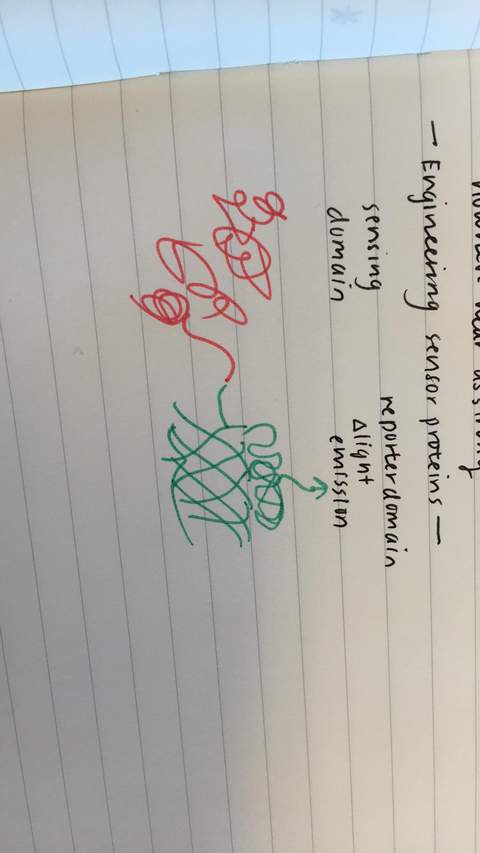 — Engineering sensor proteins —
sensing
domain
reporter domain
Δ light
emission